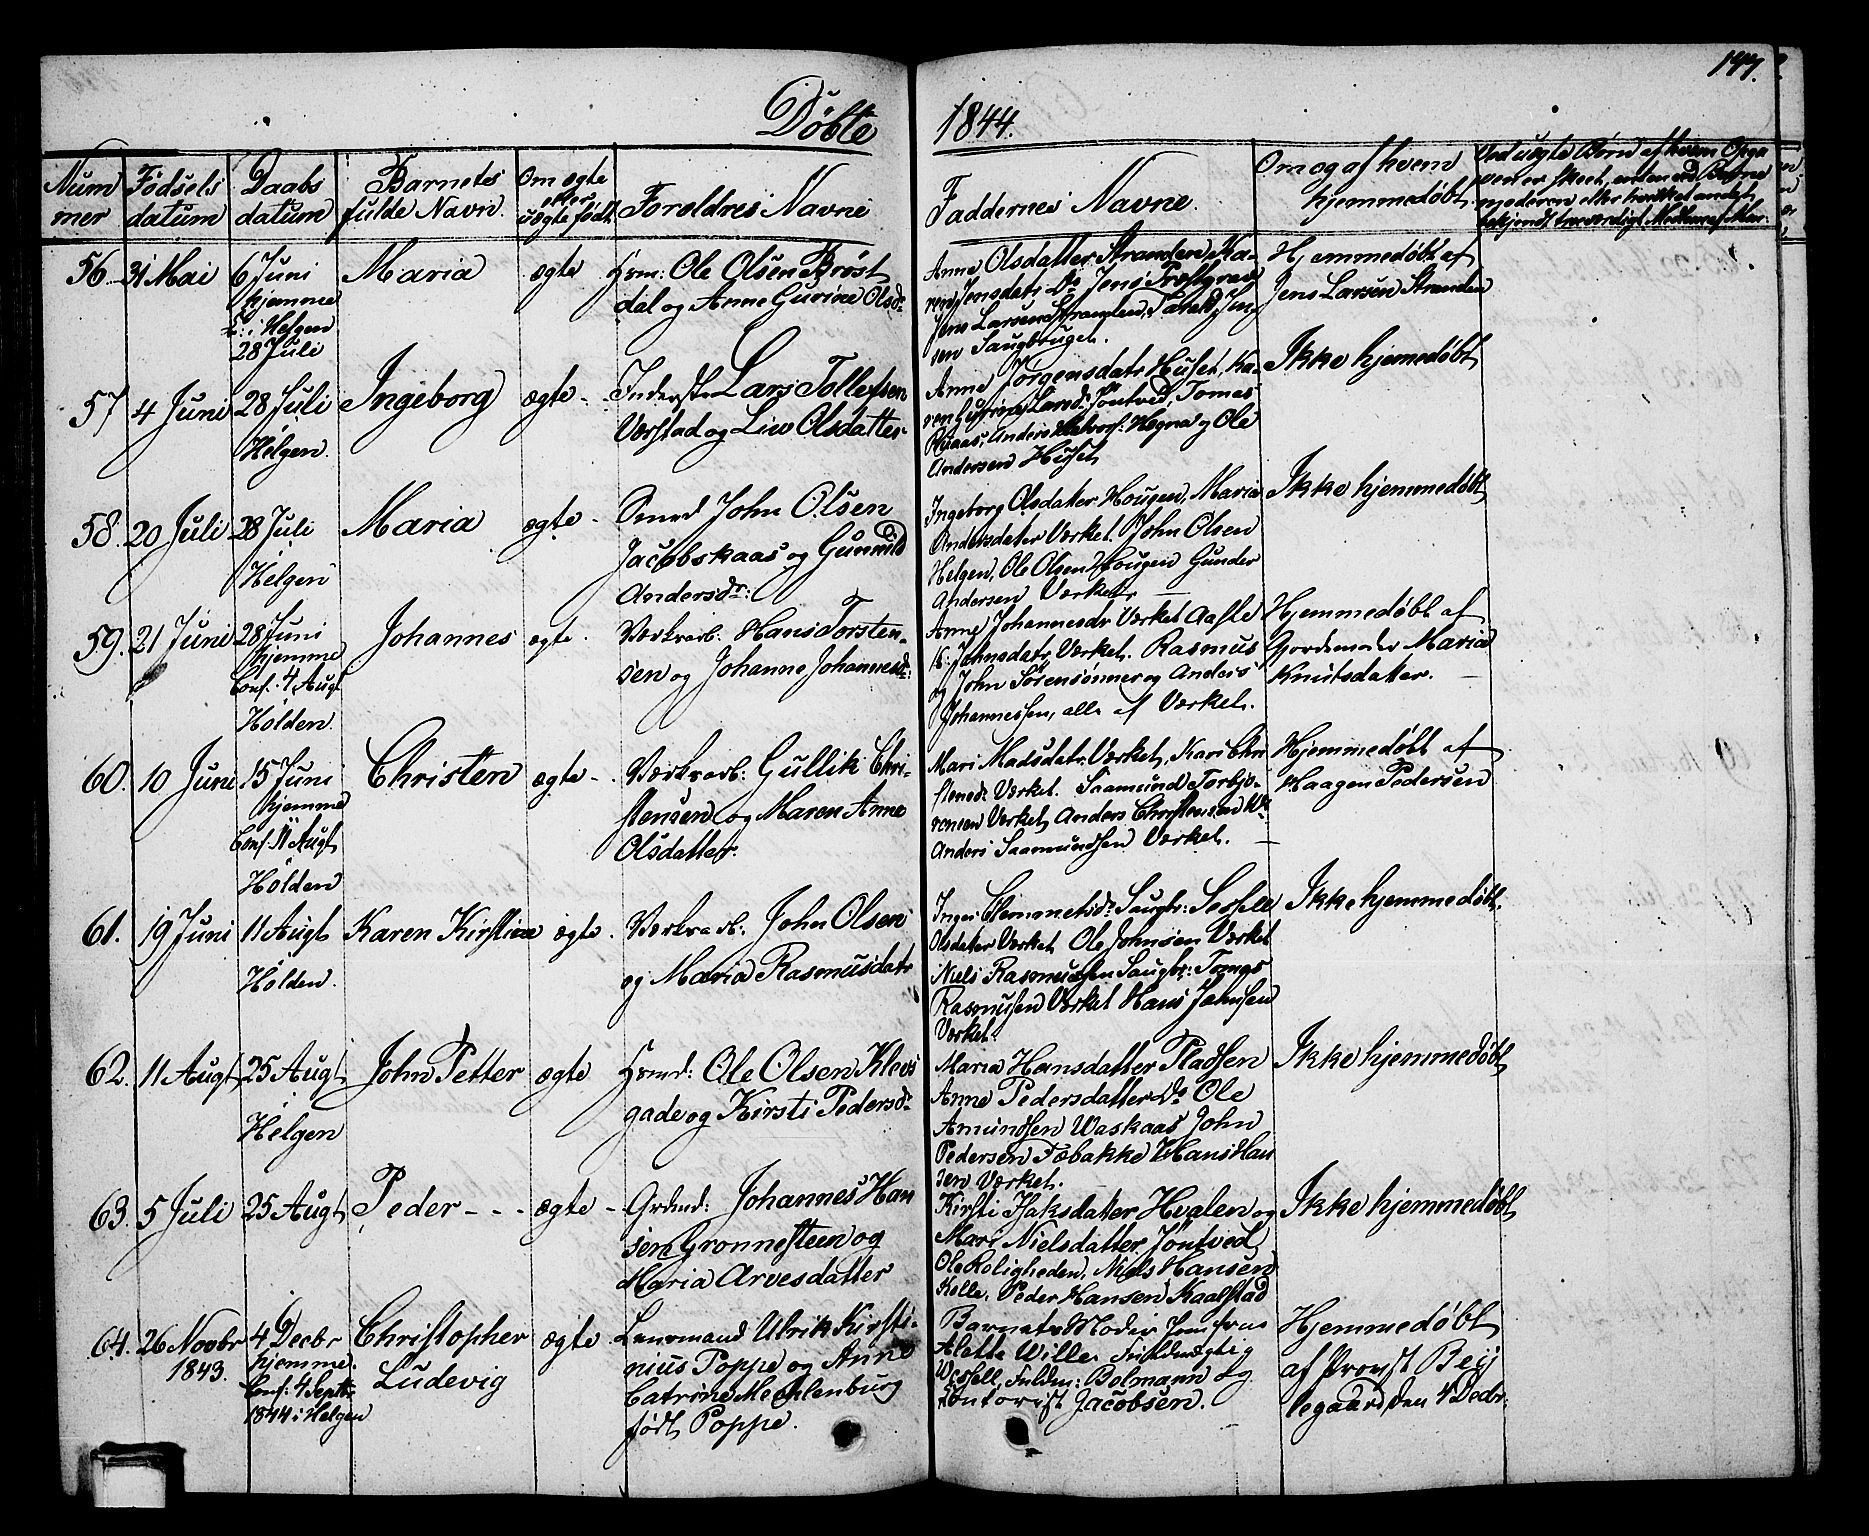 147.
Døbte 1844.
Nummer
Fødsels datum
Daabs datum
Barnets fulde Navn.
Om ægte eller uægte født
Foreldres Navne
Faddernes Navne.
Om og af hvem hjemmedøbt.
Ved uægte Børn af hvem Opgaven er skeet, enten ved Barnemoderen eller hvilket andet bekjendt troværdigt Medlem af
56.
31 Mai
6 Juni
hjemme
i Helgen
28 Juli
Maria
ægte
Ole Olsen Brøst
dal og Anne Gurine Olsdr.
Anne Olsdatter Stranden Ka-
ren Jensdatr Do Jens
Jens Larsen Stranden,
sen Saugbruget.
Hjemmedøbt af
Jens Larsen Stranden
57
4 Juni
28 Juli
Helgen.
Ingeborg
ægte -
Inderste Lars Tollefsen
Værstad og Live Olsdatter.
Anne Jørgensdatr Huset, Ka-
ren Gurine Larsdr Jontved, Tomas
Anders Halvors: Hegna og Ole
Andersen Huset
Ikke hjemedøbt
58.
20 Juli
28 Juli
Helgen
Maria
ægte -
Smed John Olsen
Jacobskaas og Gunnild
Andersdr:
Ingeborg Olsdater Hougen, Maria
Andersdater Værket. John Olsen
Helgen, Ole Olsen Hougen Gunder
Andersen Værket, -
Ikke hjemmedøbt
59.
21 Juni
28 Juni
hjemme
Conf. 4 Augt
Holden.
Johannes
ægte.
Værkarb: Hans Torsten-
sen og Johanne Johannesdr:
Anne Johannesdr Værket
Johnsdatr Værket. Rasmus
og John Sørensønner og Anders
Johannessen, alle af Værket.
Hjemmedøbt af
Jordemoder Maria
Knutsdatter. -
60.
10 Juni
15 Juni
hjemme
Conf. 11 Augt
Holden
Christen
ægte -
Værkarb: Gullik Chri-
stensen og Maren Anne
Olsdatter.
Mari Madsdatr Værket, Kari Chri
stensdr Værket. Saamund Torbjø-
rensen Værket, Anders Christensen
Anders Saamundsen Værket. -
Hjemmedøbt af
Haagen Pedersen
61.
19 Juni
11 Augt
Holden.
Karen Kirstine
ægte.
Værkarb: John Olsen
og Maria Rasmusdatr
Inger Clemmetsdr Saugbr:
Olsdater Værket Ole Johnsen Værket
Niels Rasmussen Saugbr: Tomas
Rasmusen Værket Hans Johnsen
Værket.
Ikke hjemmedøbt.
62.
11 Augt
25 Augt
Helgen
John Petter
ægte
Ole Olsen Klevs
gade og Kirsti Pedersdr
Maria Hansdatter Pladsen
Anne Pedersdatter Do Ole
Amundsen Waskaas John
Pedersen Fæbakke Hans Han
sen Værket.
Ikke hjemmedøbt
63.
5 Juli
25 Augt
Peder - - -
ægte -
Johannes Han
sen Grønnesteen og
Maria Arvesdatter
Kirsti Isaksdatter Hvalen og
Mari Nielsdatter Jontved,
Ole Roligheden, Niels Hansen
Kolle, Peder Hansen Kaasstad
Ikke hjemmedøbt
64.
26 Novbr
1843.
4 Decbr
hjemme.
Conf: 4 Septr
1844 i Helgen
Christopher
Ludevig
ægte
Lensmand Ulrik Kirsti-
nius Poppe og Anne
Catrine Mechlenburg
født Poppe.
Barnets Moder Jomfrue
Alette Wille.
Wessell, Fuldm: Bolmann og
Kontorist Jacobsen.
Hjemmedøbt
af Provst Beij
legaard, den 4 Decbr.